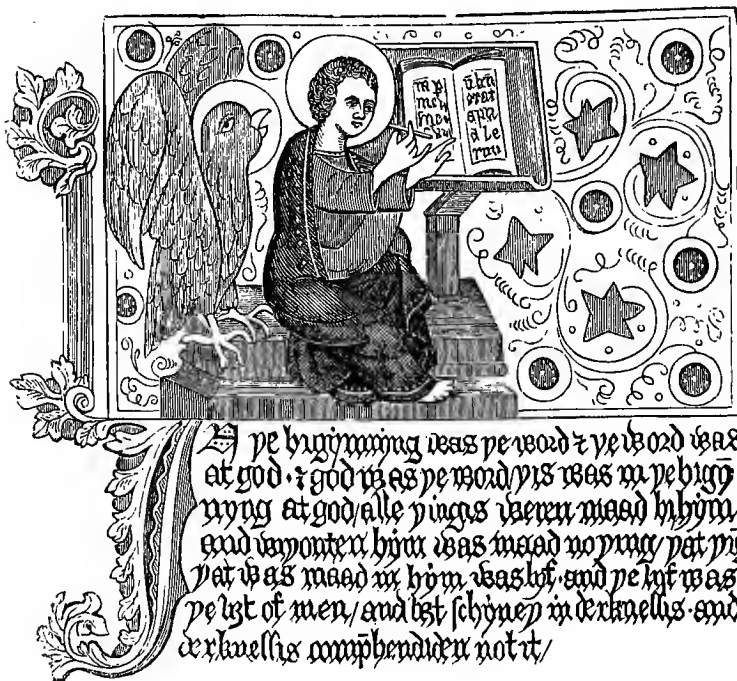 IN ye bigynnyng was ye word ⁊ ye word was
at god · ⁊ god was ye word / yis was in ye bigyn̄
nyng at god / alle yingis weren maad bi hym /
and wiyouten hym was maad no ying / yat yīg
yat was maad in hym was lyf · and ye lyf was
ye liȝt of men / and liȝt ſchyney in derkneſſis · and
derkneſſis comp̄hendiden not it /